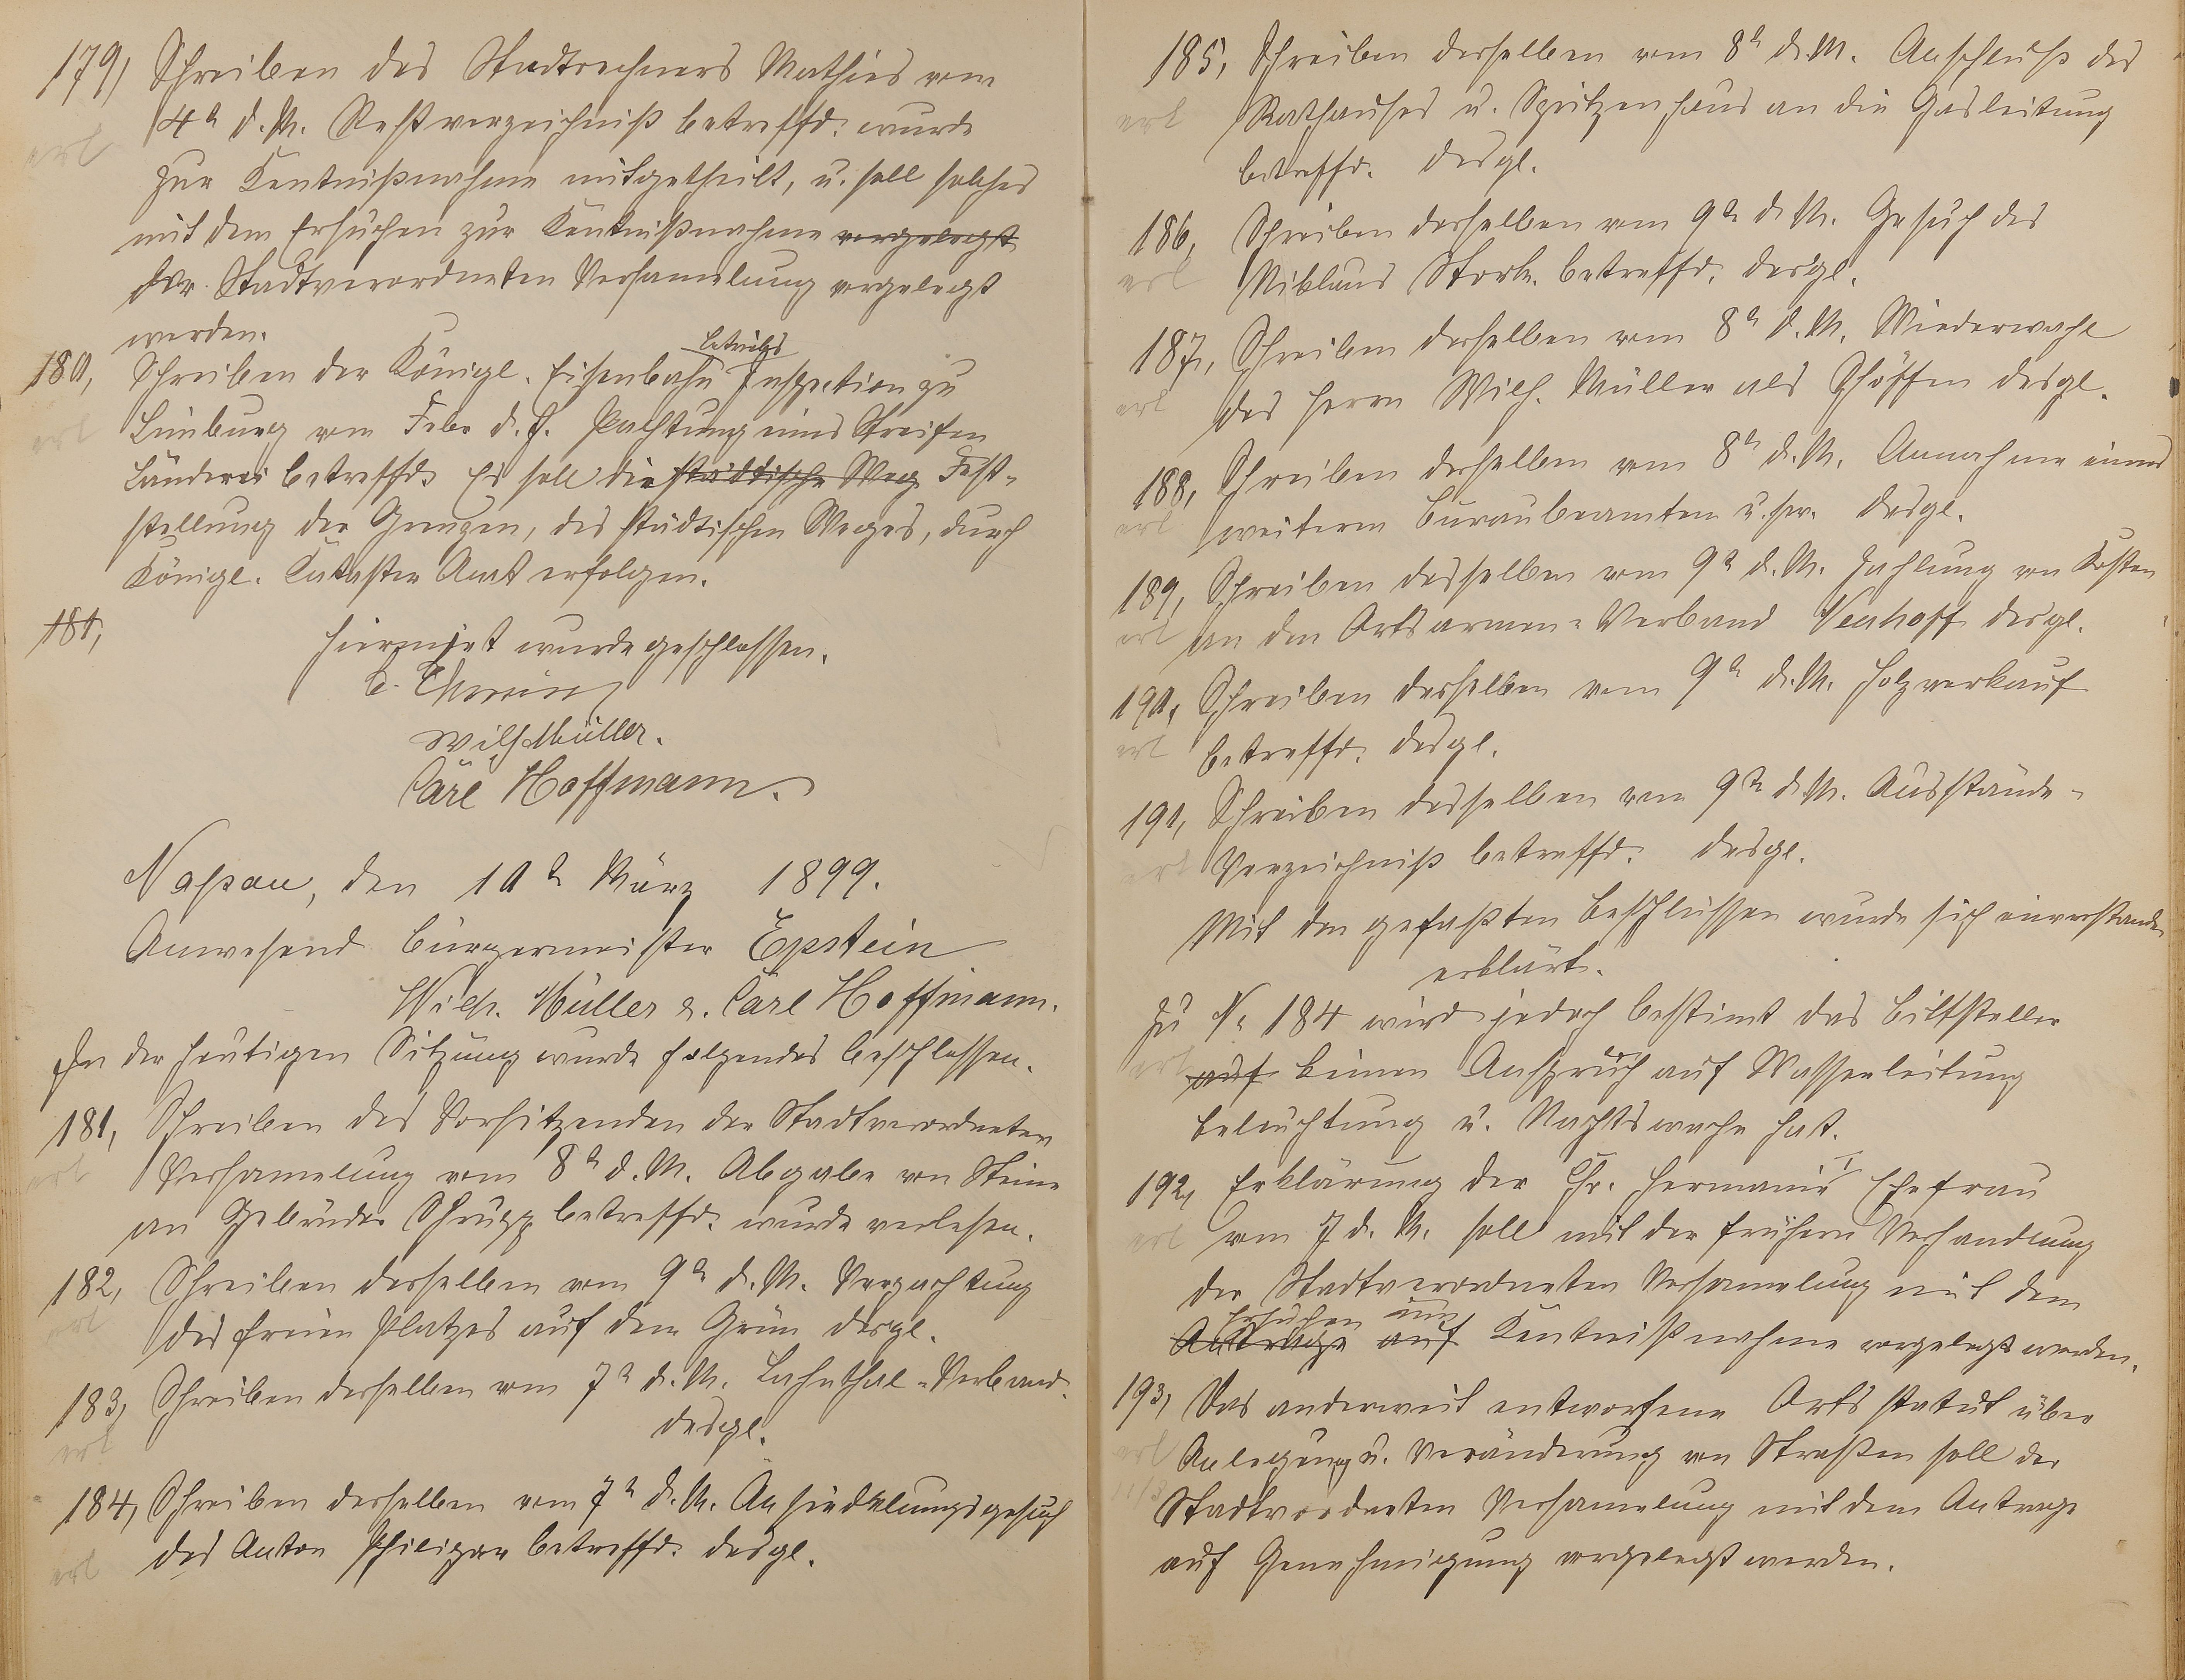 179, Schreiben des Stadtrechners Mathies vom
4t d. M. Restverzeichniß betreffd. wurde
erl
zur Kentnißnahme mitgetheilt, u. soll solches
mit dem Ersuchen zur Kentnißnahme vorgelegt
der Stadtverordneten Versamelung vorgelegt
werden.
betriebs
180, Schreiben der Königl. Eisenbahn Inspection zu
Limburg vom Febr d. J. Pachtung eines Streifen
erl
Länderei betreffd. Es soll die städtische Weg Fest-
stellung der Grenzen, des städtischen Weges, durch
Königl. Kataster Amt erfolgen.
181,
Hiermit wurde geschlossen.
Wilh Müller.
Carl Hoffmann.
Naßau, den 10t März 1899.
Anwesend Bürgermeister Epstein
Wilh. Müller u. Carl Hoffmann.
In der heutigen Sitzung wurde folgendes beschlossen.
181, Schreiben des Vorsitzenden der Stadtverordneten
erl Versamelung vom 8t d. M. Abgabe von Steine
an Gebrüder Schrupp betreffd. wurde verlesen.
182, Schreiben desselben vom 9t d. M. Verpachtung
erl des freien Platzes auf dem Grün desgl.
183, Schreiben desselben vom 7t d. M. Lahnthal-Verband.
erl desgl.
184, Schreiben desselben vom 7t d. M. Ansiedelungsgesuch
erl des Anton Philippar betreffd. desgl.
185, Schreiben desselben vom 8t d. M. Anschluß des
erl Rathauses u. Spritzenhaus an die Gasleitung
betreffd. desgl.
186, Schreiben desselben vom 9t d. M. Gesuch des
erl Niklaus Stork. betreffd. desgl.
187, Schreiben desselben vom 8t d. M. Wiederwahl
erl des Herrn Wilh. Müller als Schöffen desgl.
188, Schreiben desselben vom 8t d. M. Annahme eines
erl weiteren Bureaubeamten u.s.w. desgl.
189, Schreiben desselben vom 9t d. M. Zahlung von Kosten
erl an den Ortsarmen-Verband Venhoff desgl.
190, Schreiben desselben vom 9t d. M. Holzverkauf
erl betreffd. desgl.
191, Schreiben desselben vom 9t d. M. Ausstände-
erl Verzeichniß betreffd. desgl.
Mit den gefaßten Beschlüssen wurde sich einverstanden
erklärt.
Zu No 184 wird jedoch bestimt das Bittsteller
erl auf keinen Anspruch auf Wasserleitung
Beleuchtung u. Nachtswache hat.
192, Erklärung der Chr. Hermanis I Ehefrau
erl vom 7 d. M. soll mit der frühern Verhandlung
der Stadtverordneten Versamelung mit dem
Ersuchen um
Antrage auf Kentnißnahme vorgelegt werden.
193, Das anderweit entworfene Ortsstatut über
erl Anlegung u. Veränderung von Straßen soll der
Stadtverordneten Versamelung mit dem Antrage
auf Genehmigung vorgelegt werden.